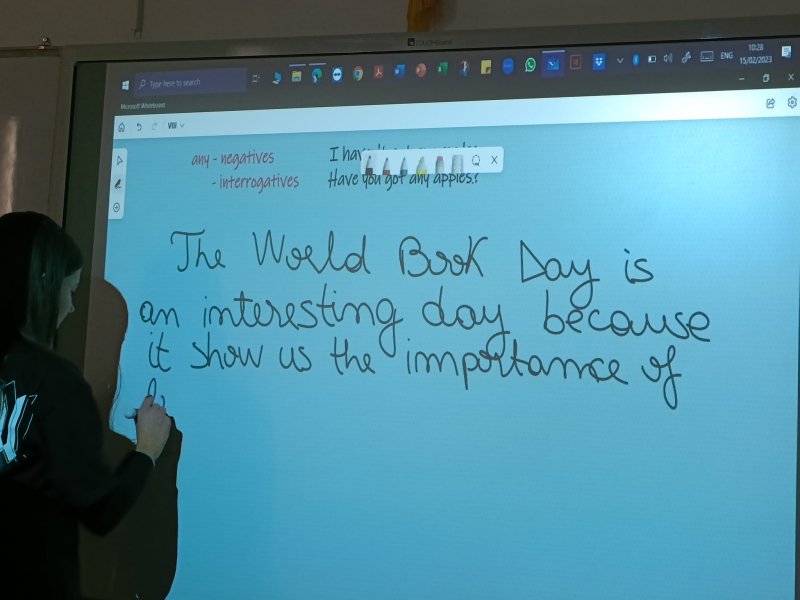 TOUCHBoard
Type here to search
ENG
10:28
15/02/2023
Microsoft Whiteboard
VIII
any - negatives
I hav
- interrogatives
Have you got any apples?
The World Book Day is
an interesting day because
it show us the importance of